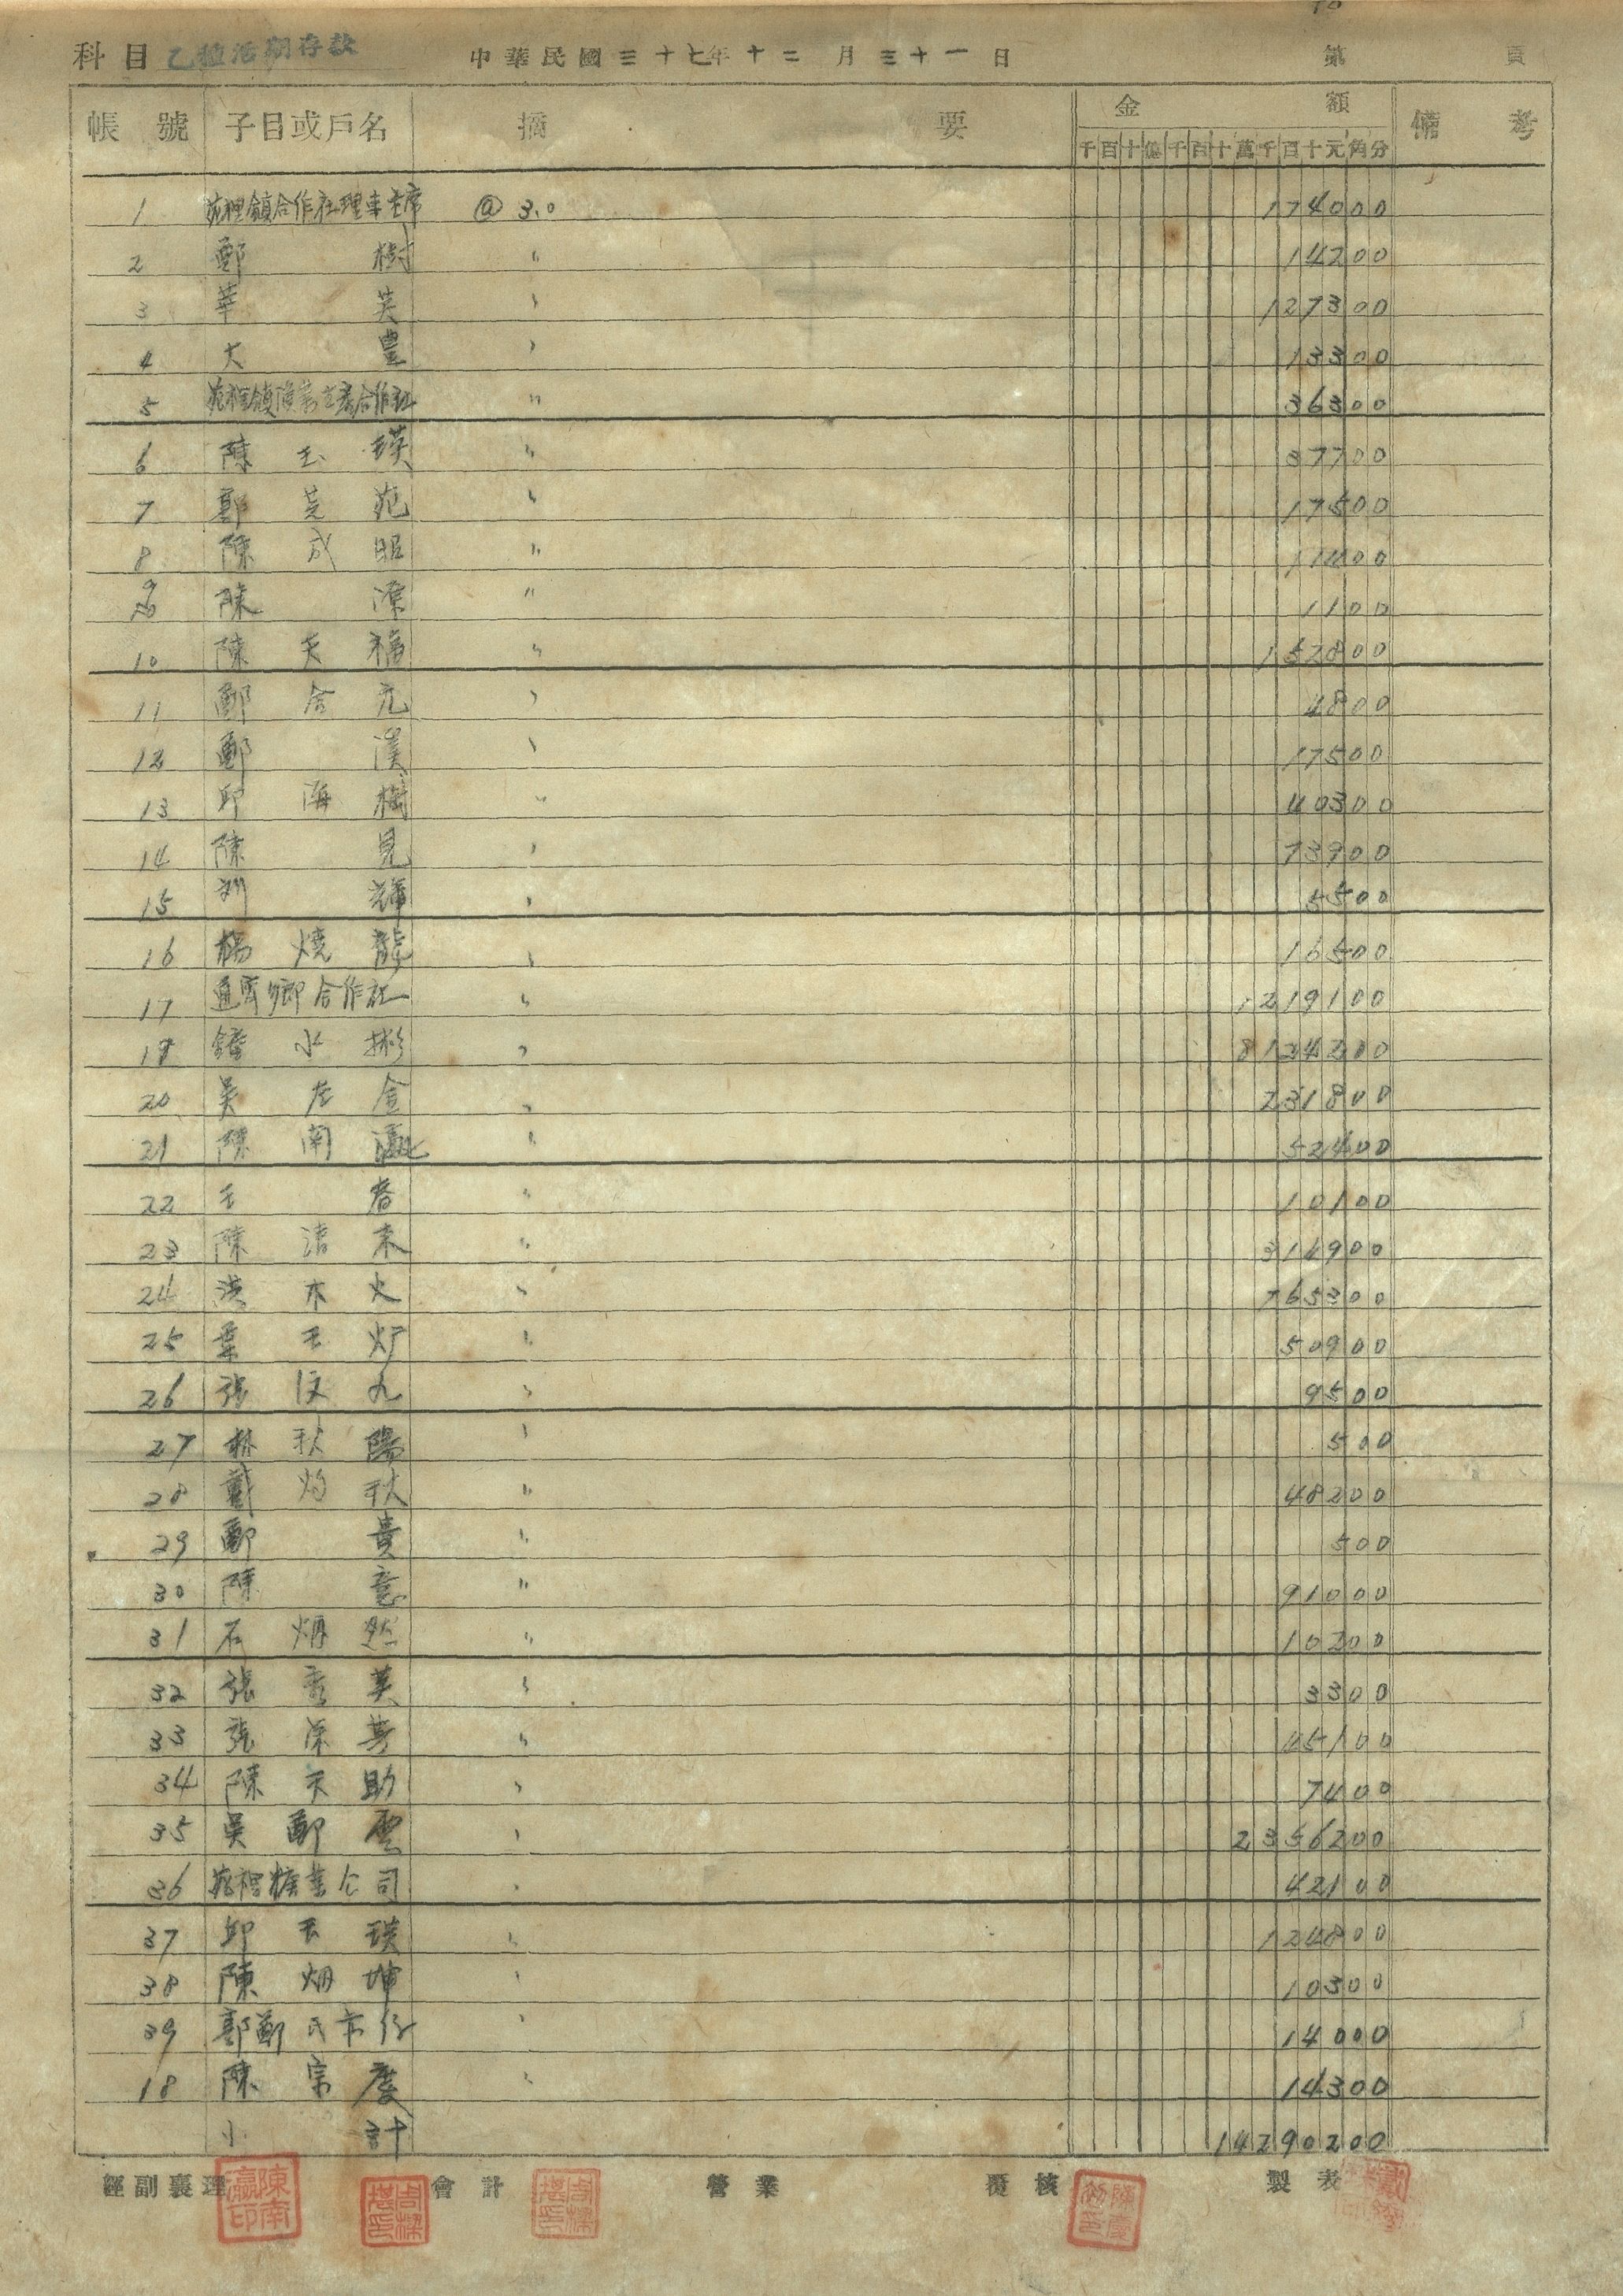 科目 乙種活期存款 中華民國三十七年十二月三十一日 第 頁
帳號 子目或戶名 摘要 金額 備考
千百十億千百十萬千百十元角分
1 苑裡鎮合作社理事主席 @3.0 174000
2 鄭樹 〃 14200
3 華美 〃 127300
4 大豊 〃 13300
5 苑裡鎮 合作社 〃 36300
6 陳玉瑛 〃 37700
7 鄭 苑 〃 17500
8 陳成昭 〃 11400
9 陳 〃 1100
10 陳天福 〃 152800
11 鄭合元 〃 4800
12 鄭漢 〃 17500
13 邱海樹 〃 40300
14 陳見 〃 73900
15 刘輝 〃 5500
16 楊燒龍 〃 16500
17 通霄鄉合作社 〃 1219100
19 鍾水彬 〃 8134200
20 吳左金 〃 231800
21 陳南瀛 〃 52400
22 王春 〃 10100
23 陳清來 〃 314900
24 洪木火 〃 765300
25 葉玉炉 〃 50900
26 張 九 〃 9500
27 林秋陽 〃 500
28 戴灼秋 〃 48200
29 鄭貴 〃 500
30 陳意 〃 91000
31 石炳然 〃 10200
32 張秀英 〃 3300
33 張深 〃 45100
34 陳天助 〃 7400
35 吳鄭雲 〃 2356200
36 苑裡糖業公司 〃 42100
37 邱玉瑛 〃 124800
38 陳炳坤 〃 10300
39 郭鄭氏市仔 〃 14000
18 陳宗慶 〃 14300
小計 14290200
經副襄理 會計 營業 覆核 製表
陳南瀛印